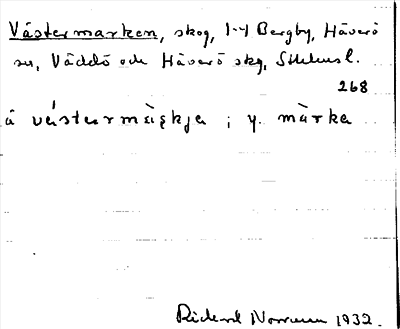 Västermarken, skog, 1-4 Bergby, Häverö
sn, Väddö och Häverö skg, Sthlmsl.
268
å västurmàrkja ; y. màrka
Rickard Norrman 1932.